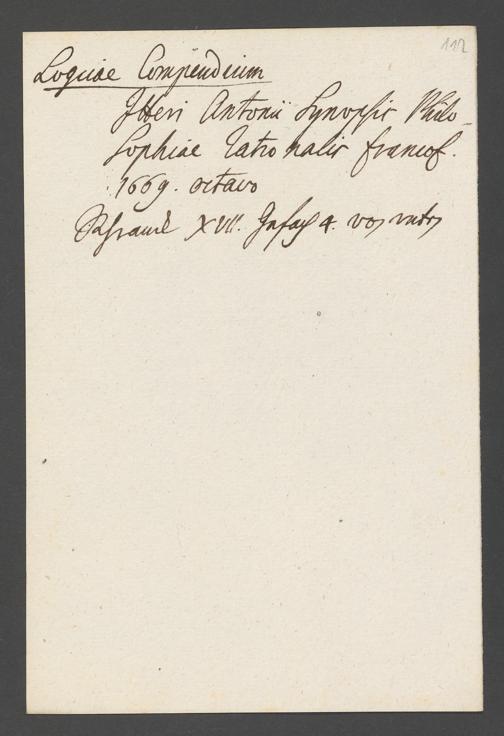 112
Logicae Compendium
Itteri Antonii Synopsis Philo-
sophiae rationalis francof.
1669. octavo
XVII. 4. von unten